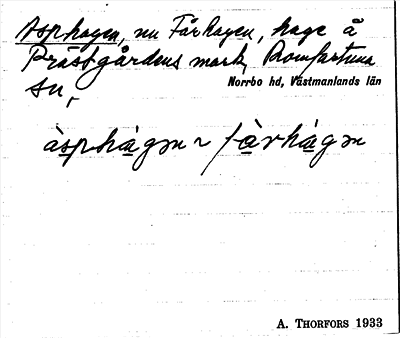 Asphagen, nu Fårhagen, hage å
Prästgårdens mark, Romfartuna
sn,
Norrbo hd, Västmanlands län
àsphàgən ~ fàrhàgən
A. THORFORS 1933